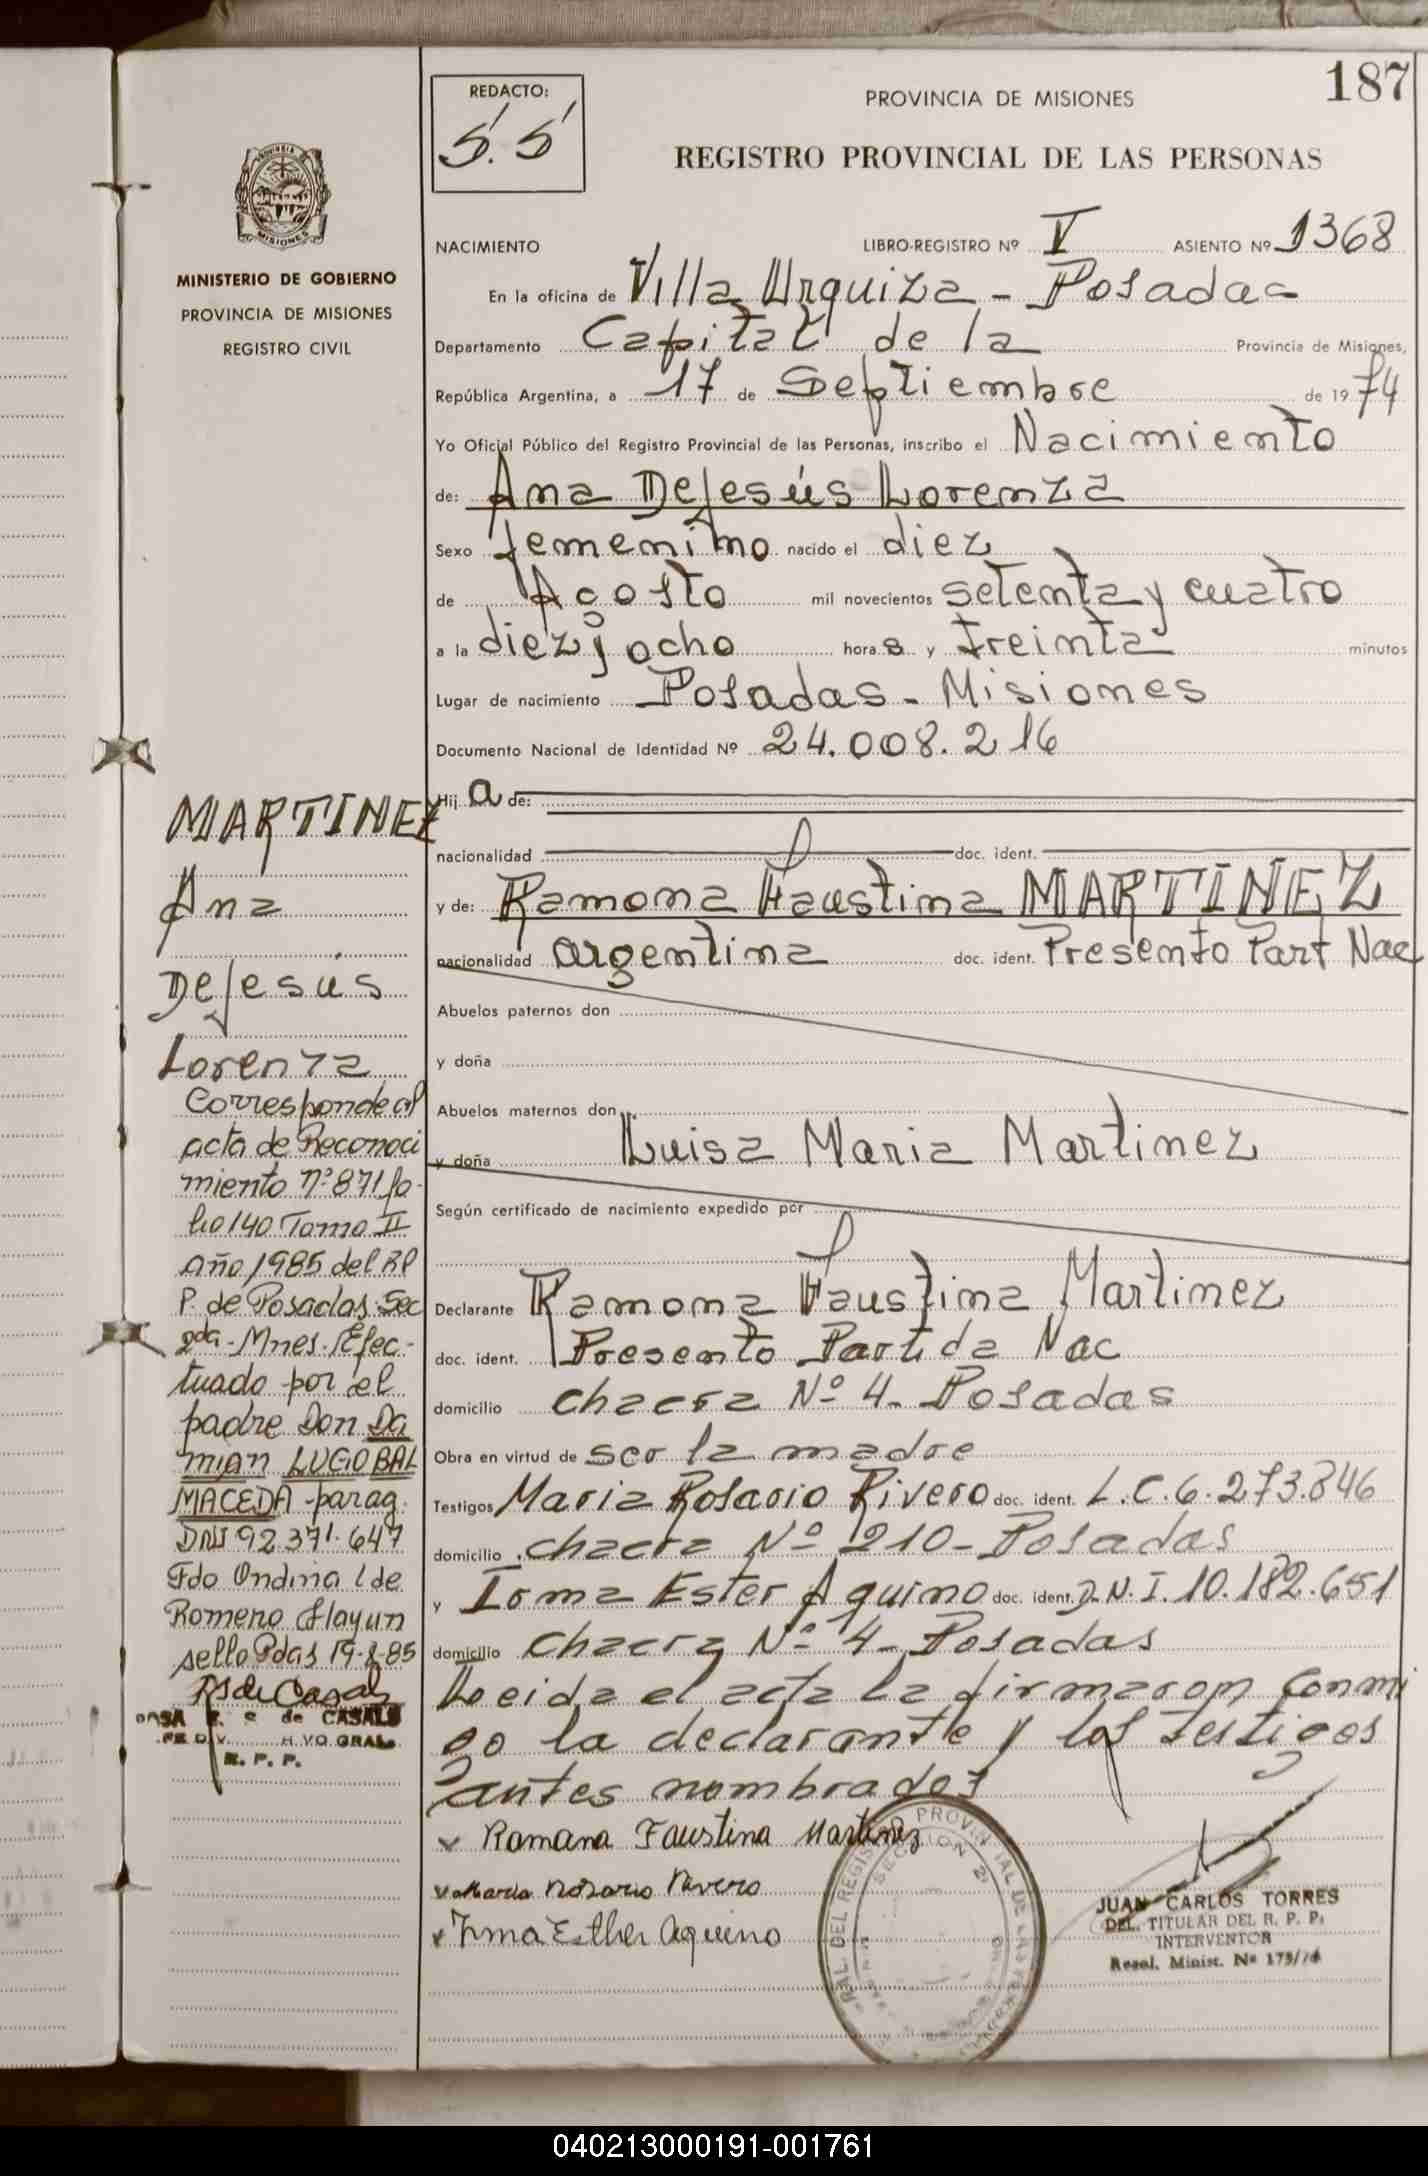 187
REDACTO:
S. S
PROVINCIA DE MISIONES
REGISTRO PROVINCIAL DE LAS PERSONAS
MINISTERIO DE GOBIERNO
PROVINCIA DE MISIONES
REGISTRO CIVIL
NACIMIENTO LIBRO-REGISTRO Nº V ASIENTO Nº 1368
En la oficina de Villa Urquiza - Posadas
Departamento Capital de la Provincia de Misiones,
República Argentina, a 17 de Septiembre de 1974
Yo Oficial Público del Registro Provincial de las Personas, inscribo el Nacimiento
de: Ana DeJesús Lorenza
Sexo femenino nacido el diez
de Agosto mil novecientos setenta y cuatro
a la diez y ocho hora s y treinta minutos
Lugar de nacimiento Posadas - Misiones
Documento Nacional de Identidad Nº 24.008.216
Hij a de:
nacionalidad doc. ident.
y de: Ramona Faustina MARTINEZ
nacionalidad argentina doc. ident. Presento Part Nac
Abuelos paternos don
y doña
Abuelos maternos don
y doña Luisa Maria Martinez
Según certificado de nacimiento expedido por
Declarante Ramona Faustina Martinez
doc. ident. Presento Partida Nac
domicilio chacra Nº 4 - Posadas
Obra en virtud de ser la madre
Testigos Maria Rosario Rivero doc. ident. L.C. 6.273.846
domicilio chacra Nº 210 - Posadas
y Irma Ester Aquino doc. ident. D.N.I. 10.182.651
domicilio chacra Nº 4 - Posadas
Leida el acta la firmaron conmi
go la declarante y los testigos
antes nombrados
Ramona Faustina Martinez
Maria Rosario Rivero
Irma Esther Aquino
JUAN CARLOS TORRES
DEL. TITULAR DEL R. P. P.
INTERVENTOR
Resol. Minist. Nº 175/74
MARTINEZ
Ana
DeJesús
Lorenza
Corresponde al
acta de Reconoci
miento Nº 871 fo-
lio 140 Tomo II
año 1985 del RP
P. de Posadas - Sec
2da - Mnes. Efec-
tuado por el
padre Don DA
MIAN LUGO BAL
MACEDA - parag.
DNI 92 371.647
Fdo Ondina I de
Romero Hay un
sello Pdas 19-8-85
de CASALS
R. P. P.
040213000191-001761